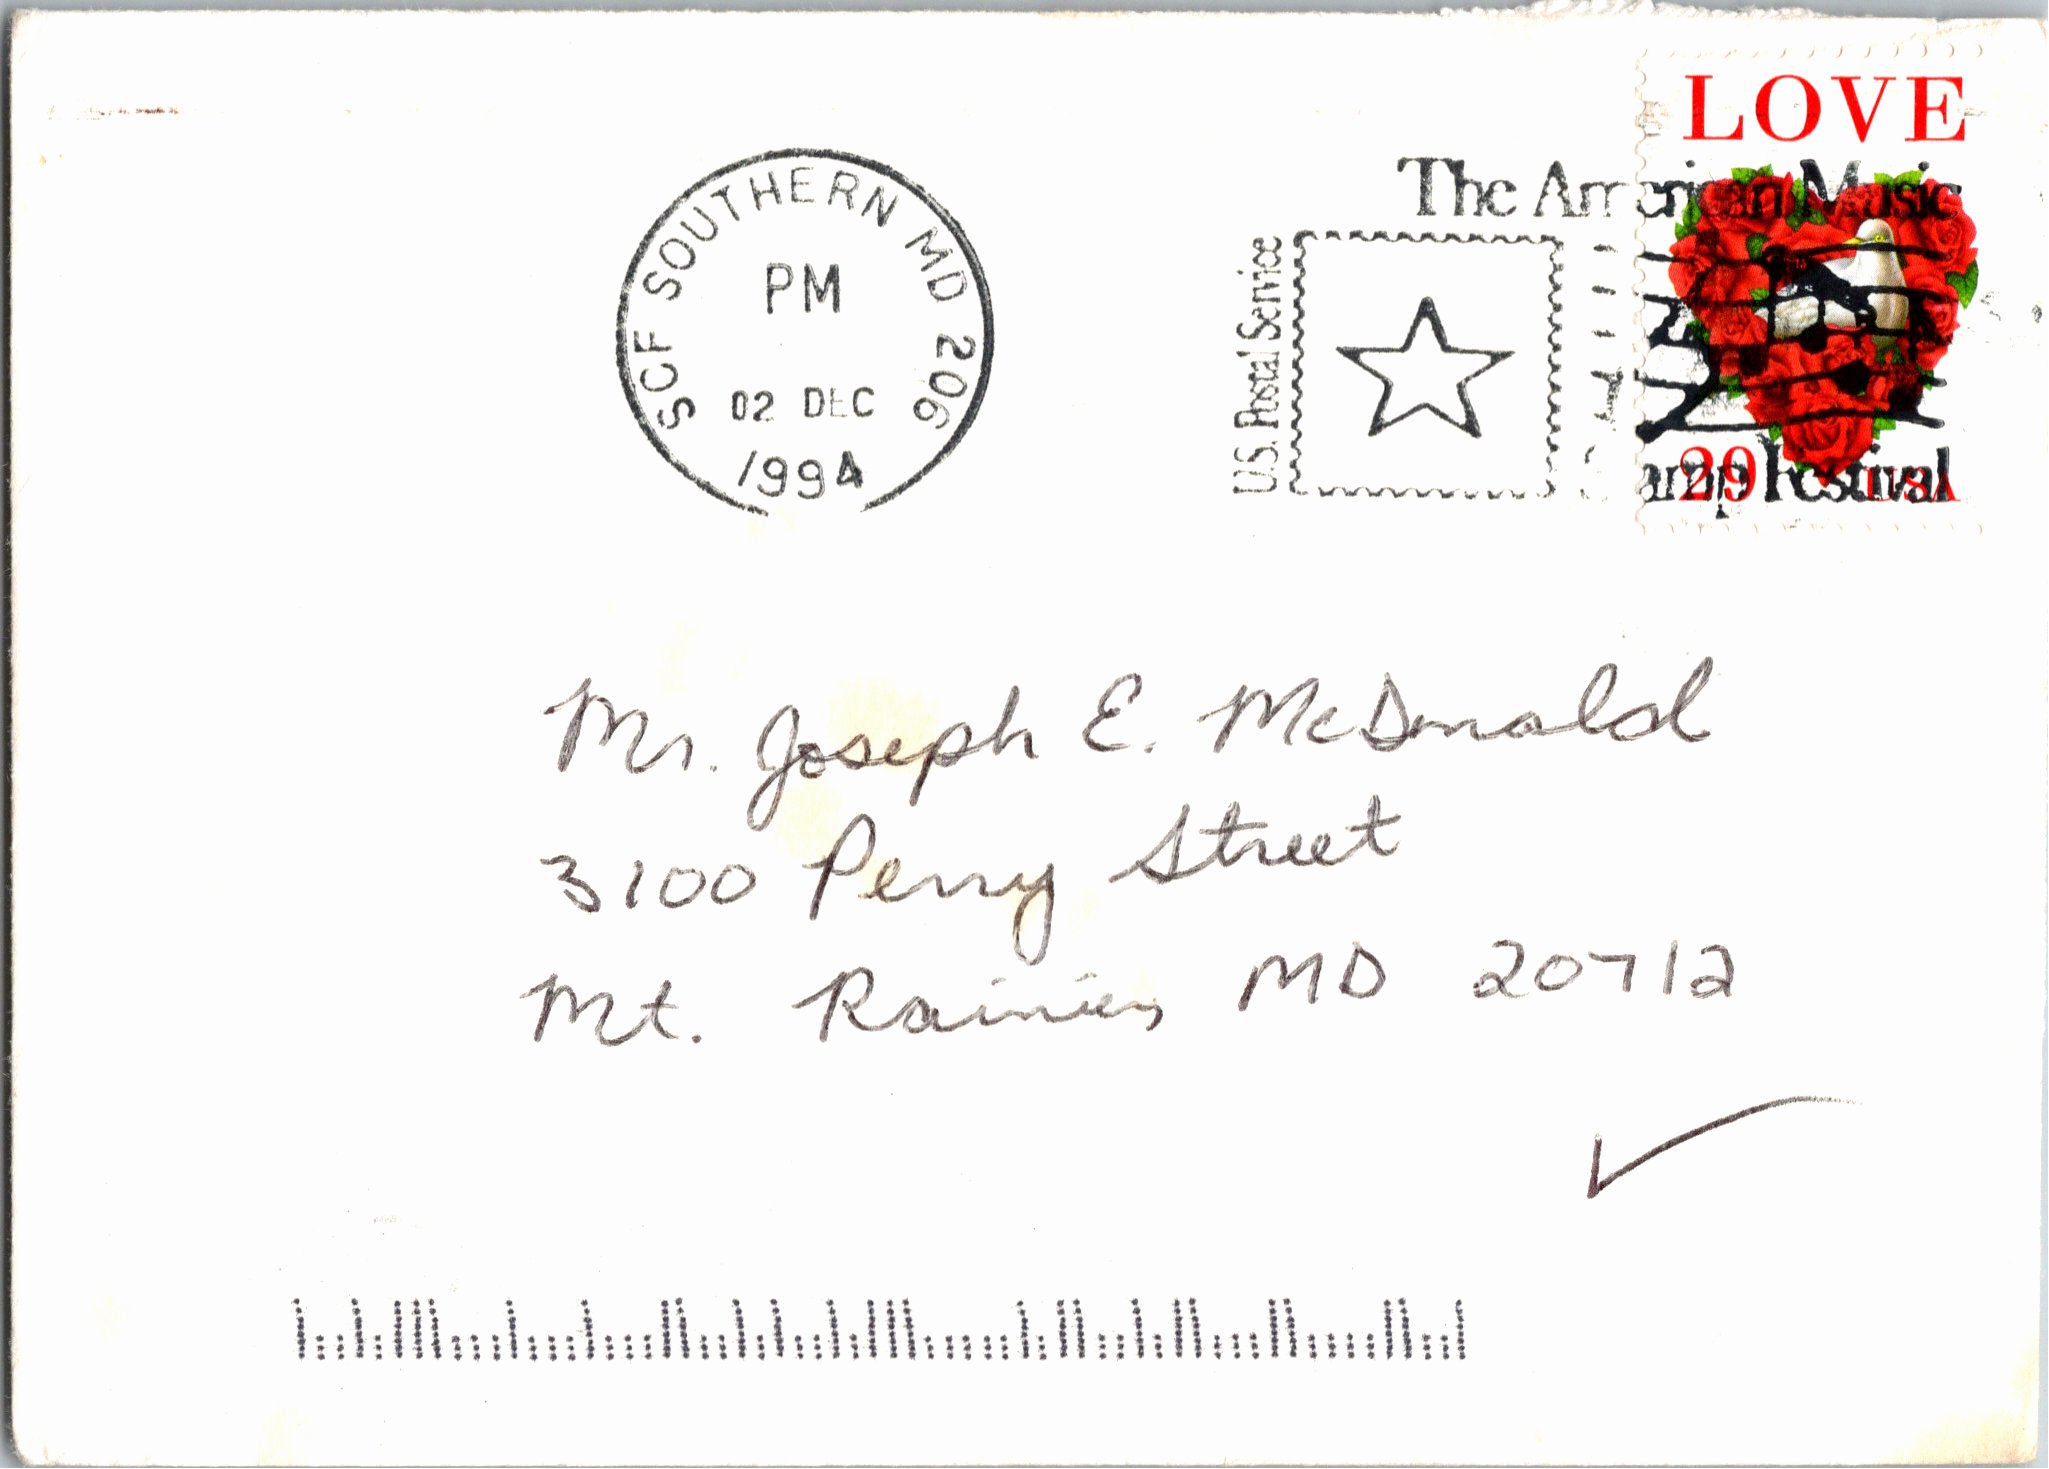 LOVE
29 USA
SCF SOUTHERN MD 206
PM
02 DEC
1994
The American Music
U.S. Postal Service
Stamp Festival
Mr. Joseph E. McDonald
3100 Perry Street
Mt. Rainier, MD 20712